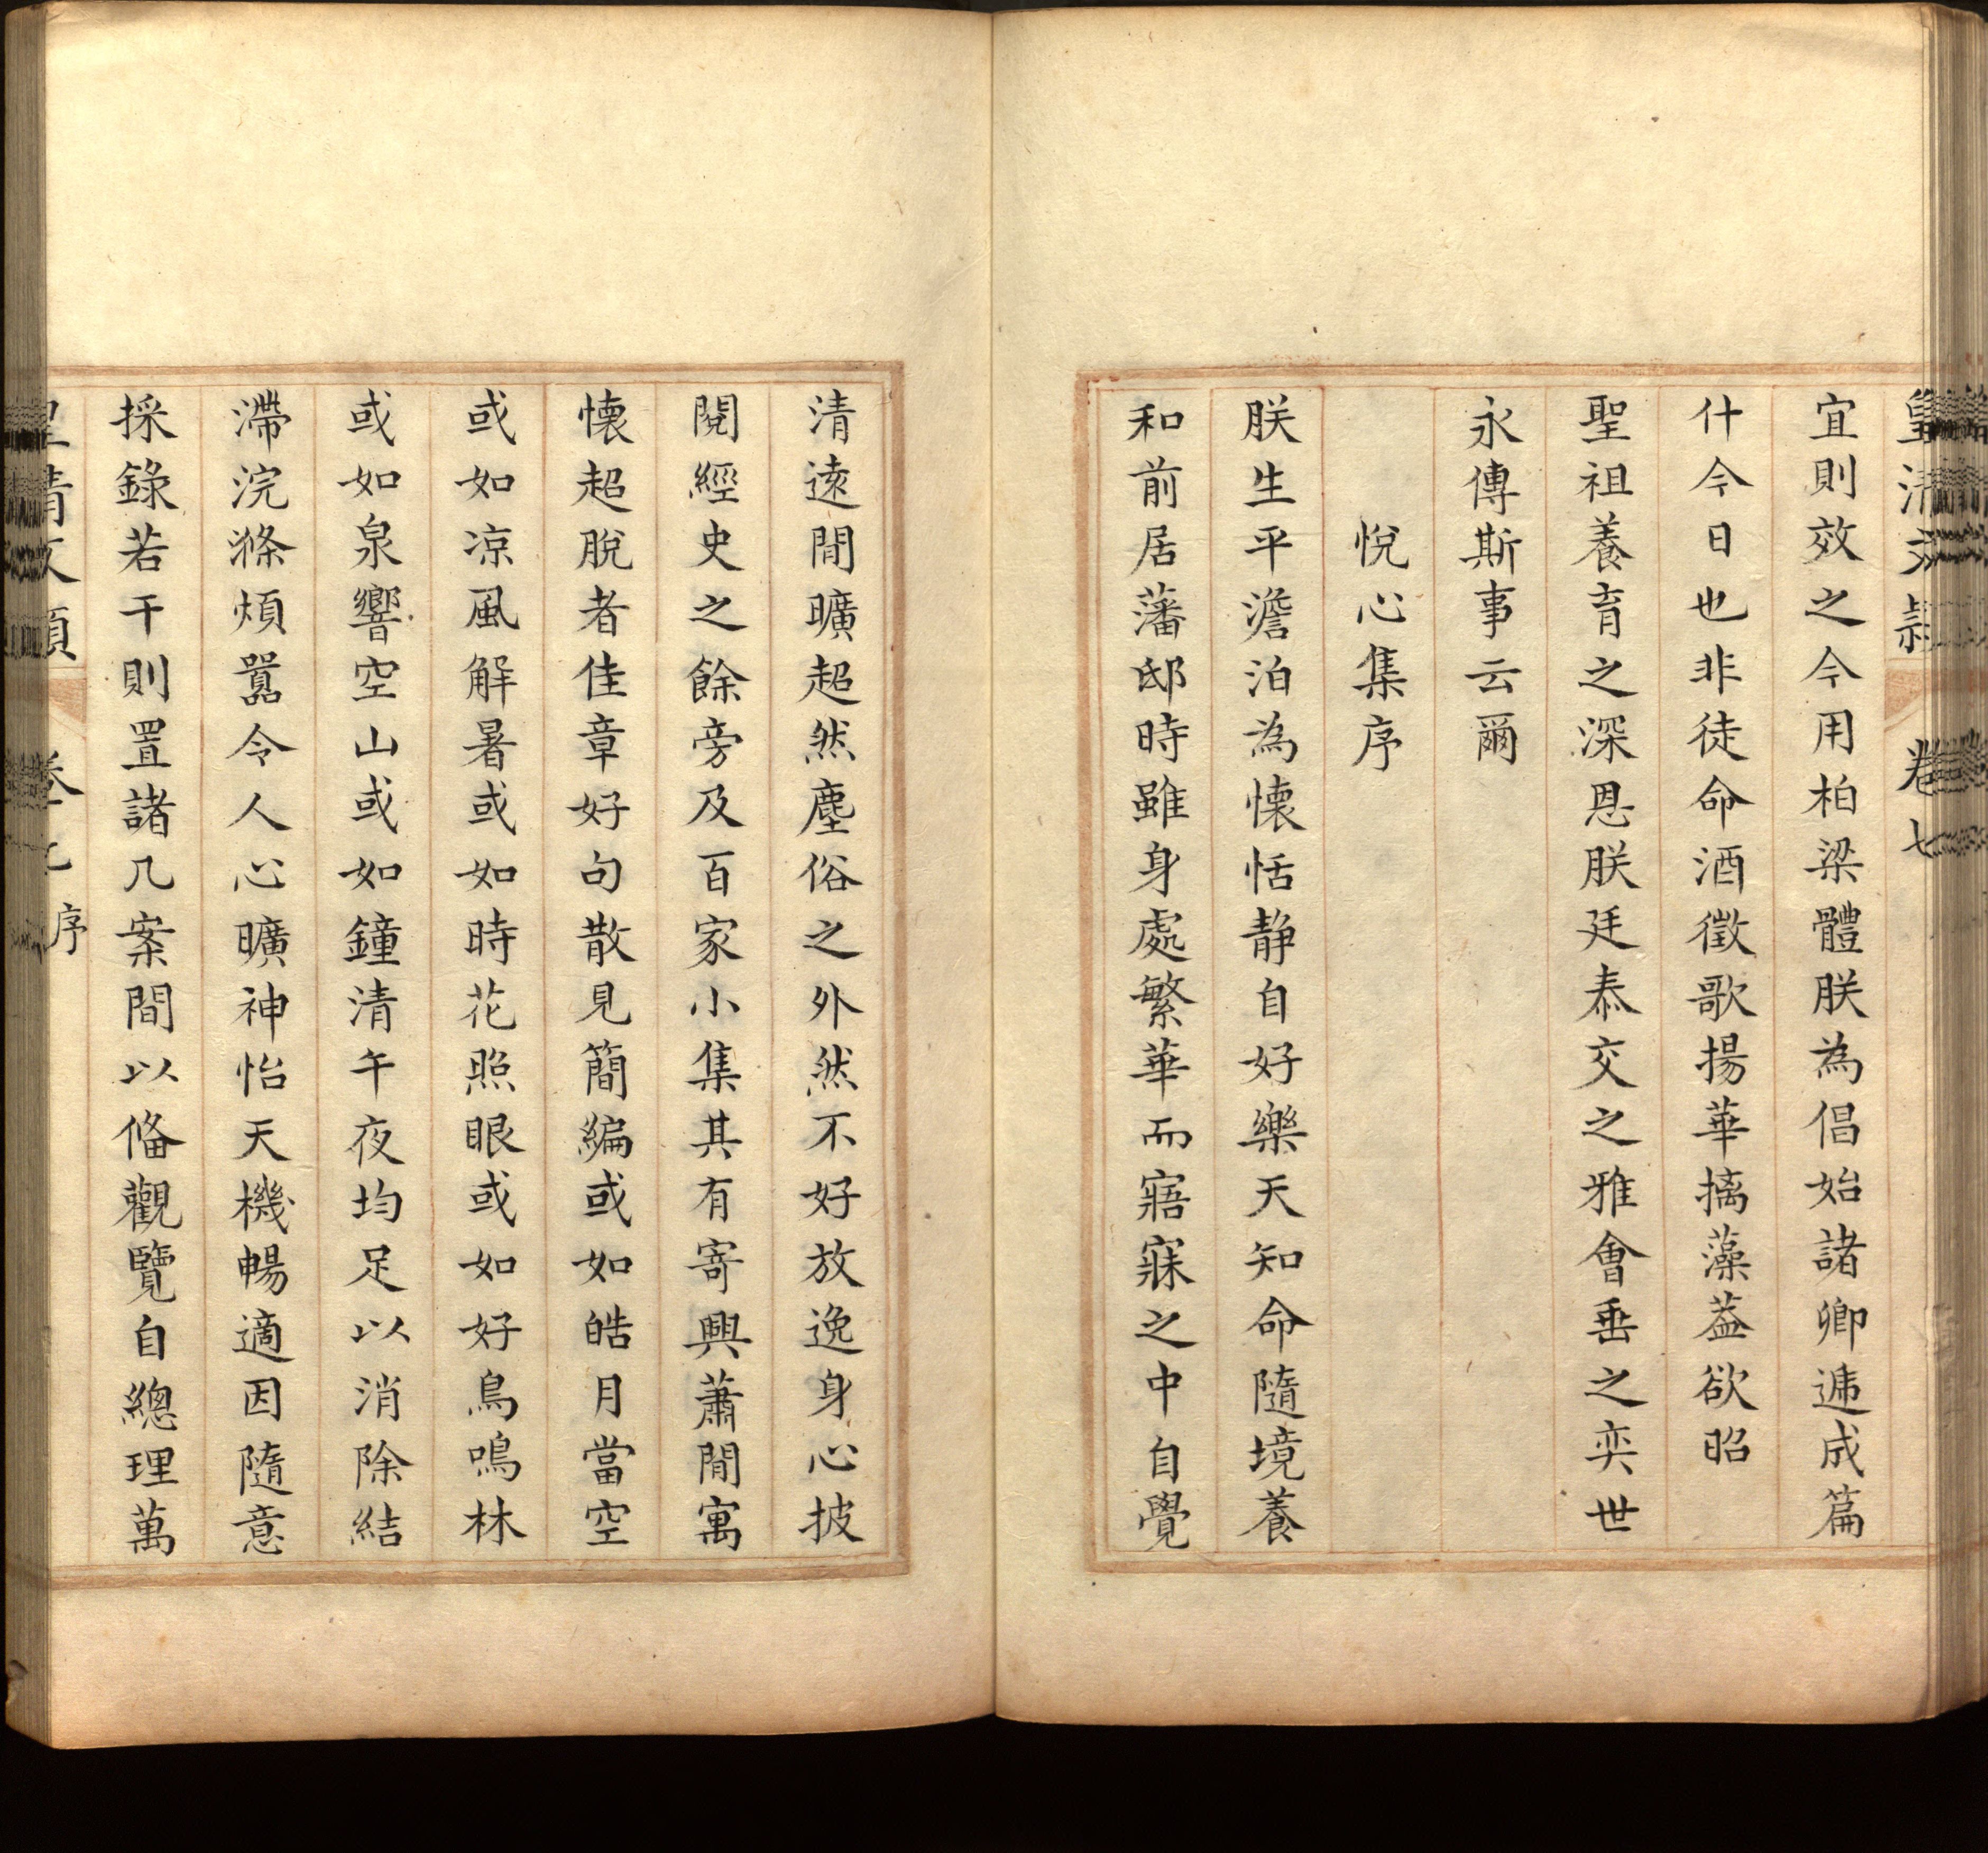 皇清文
卷七
宜則效之今用柏梁體朕為倡始諸卿遞成篇
什今日也非徒命酒徵歌揚華摛藻葢欲昭
聖祖養育之深恩朕廷泰交之雅會垂之奕世
永傳斯事云爾
悅心集序
朕生平澹泊為懷恬静自好樂天知命隨境養
和前居藩邸時雖身處繁華而寤寐之中自覺
清遠閒曠超然塵俗之外然不好放逸身心披
閱經史之餘旁及百家小集其有寄興蕭閒寓
懷超脫者佳章好句散見簡編或如皓月當空
或如凉風解暑或如時花照眼或如好鳥鳴林
或如泉響空山或如鐘清午夜均足以消除結
滯浣滌煩囂令人心曠神怡天機暢適因隨意
採錄若干則置諸几案間以偹觀覽自總理萬
清文類
卷七
序